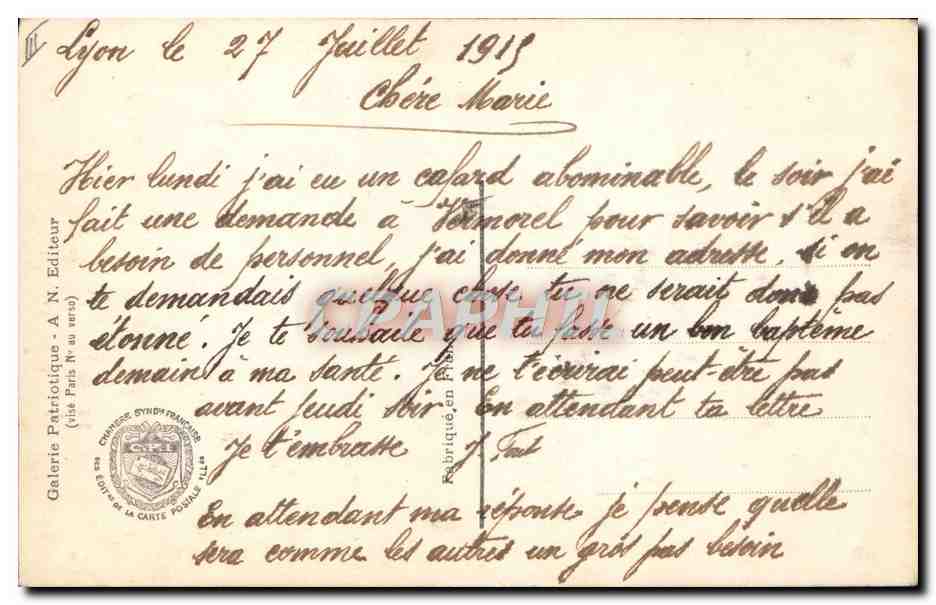 III
Lyon le 27 Juillet 1915
Chére Marie
Hier lundi j'ai eu un cafard abominable, le soir j'ai
fait une demande à Vermorel pour savoir s'il a
besoin de personnel, j'ai donné mon adresse, si on
te demandais quelque chose tu ne serait donc pas
étonné. Je te souhaite que tu fasse un bon baptême
demain à ma santé. Je ne t'écrirai peut-être pas
avant jeudi soir En attendant ta lettre
Je t'embrasse J.
En attendant ma réponse je pense quelle
sera comme les autres un gros pas besoin
Galerie Patriotique - A N. Editeur
(visé Paris N° au verso)
CHAMBRE SYNDle FRANÇAISE
DES EDITrs DE LA CARTE POSTALE ILLée
Fabriqué en
CPARHII